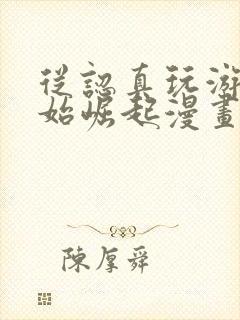 從認真玩游
始崛起漫畫
陳厚舜